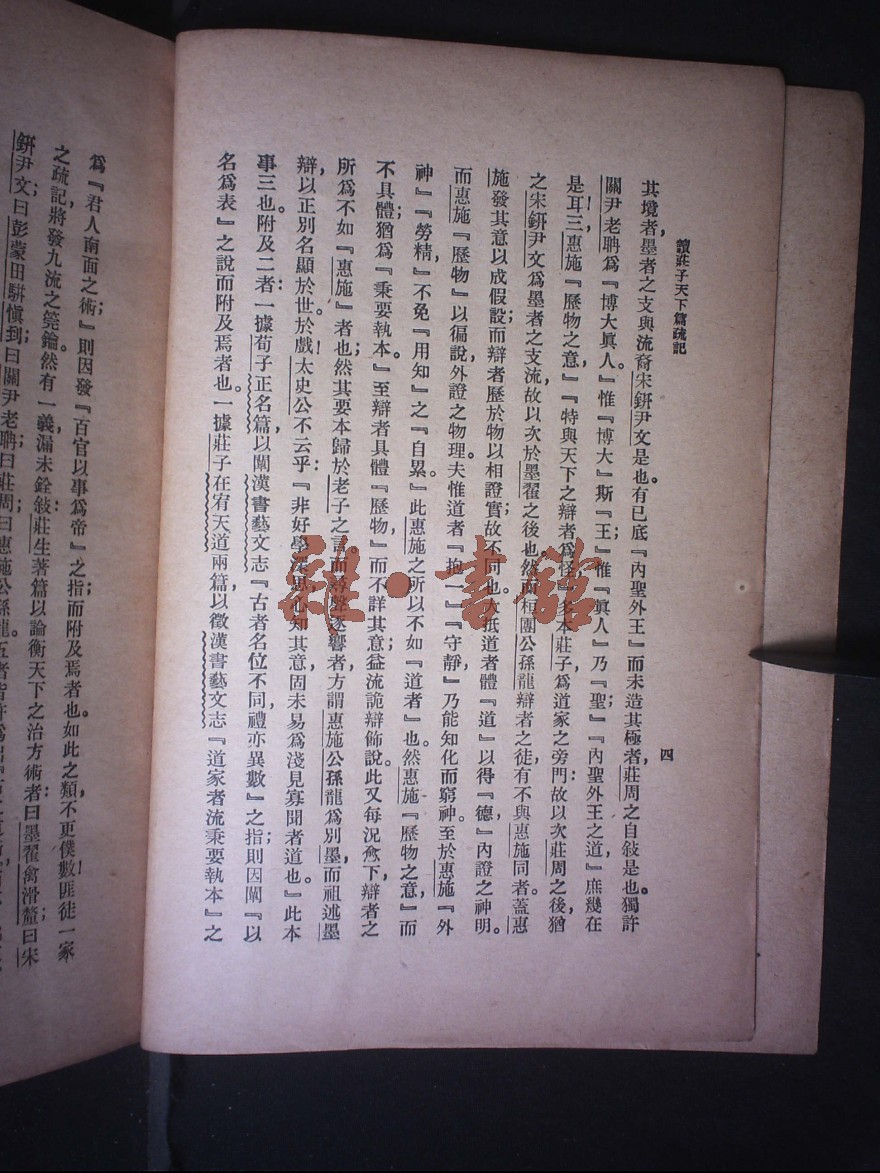 讀莊子天下篇疏記
四
其境者墨者之支與流裔宋鈃尹文是也。有已底『內聖外王』而未造其極者莊周之自敍是也。獨許
關尹老聃爲『博大眞人』惟『博大』斯『王』惟『眞人』乃『聖』『內聖外王之道』庶幾在
是耳！三惠施『歷物之意』『特與天下之辯者爲怪』多本莊子爲道家之旁門故以次莊周之後猶
之宋鈃尹文爲墨者之支流故以次於墨翟之後也。然而桓團公孫龍辯者之徒有不與惠施同者蓋惠
施發其意以成假設而辯者歷於物以相證實故不同也。大抵道者體『道』以得『德』內證之神明。
而惠施『歷物』以徧說外證之物理。夫惟道者『抱一』『守靜』乃能知化而窮神。至於惠施『外
神』『勞精』不免『用知』之『自累。』此惠施之所以不如『道者』也。然惠施『歷物之意』而
不具體；猶爲『秉要執本。』至辯者具體『歷物』而不詳其意益流詭辯飾說。此又每況愈下，辯者之
所爲不如『惠施』者也。然其要本歸於老子之言而尋聲逐響者方謂惠施公孫龍爲別墨，而祖述墨
辯以正別名顯於世。於戲！太史公不云乎：『非好學深思心知其意固未易爲淺見寡聞者道也。』此本
事三也。附及二者：一據荀子正名篇以闡漢書藝文志『古者名位不同，禮亦異數』之指；則因闡『以
名爲表』之說而附及焉者也。一據莊子在宥天道兩篇以徵漢書藝文志『道家者流秉要執本』之
爲『君人南面之術；』則因發『百官以事爲帝』之指而附及焉者也。如此之類不更僕數！匪徒一家
之疏記，將發九流之筦鑰。然有一義漏未銓敍：莊生著篇以論衡天下之治方術者：曰墨翟禽滑釐；曰宋
鈃尹文；曰彭蒙田駢愼到；曰關尹老聃；曰莊周；曰惠施公孫龍五者皆許爲出『古之道術，